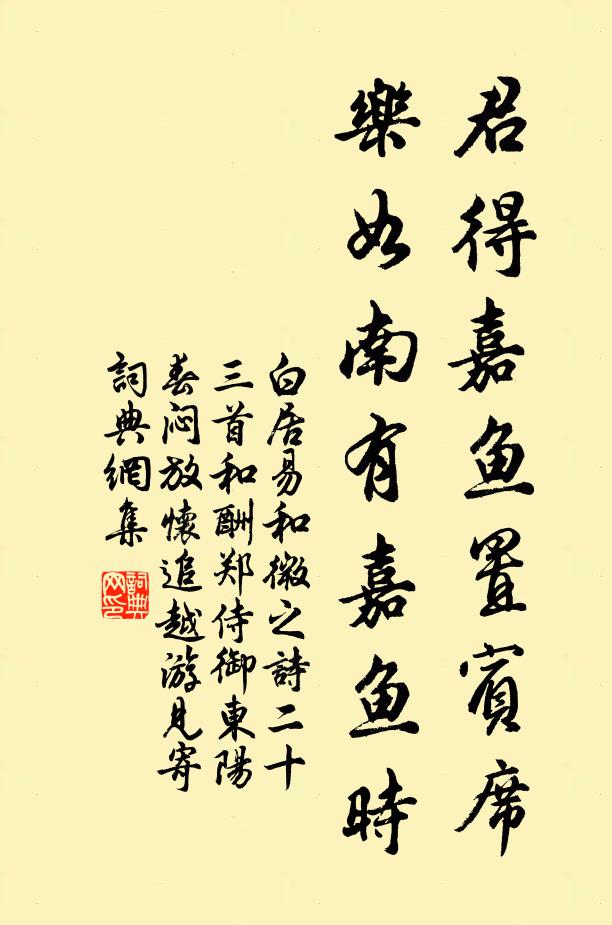 君得嘉鱼置賓席
樂如南有嘉鱼時
白居易和微之詩二十
三首和酬郑侍御東陽
春闷放懷追越游見寄
詞典網集
詞典
网印